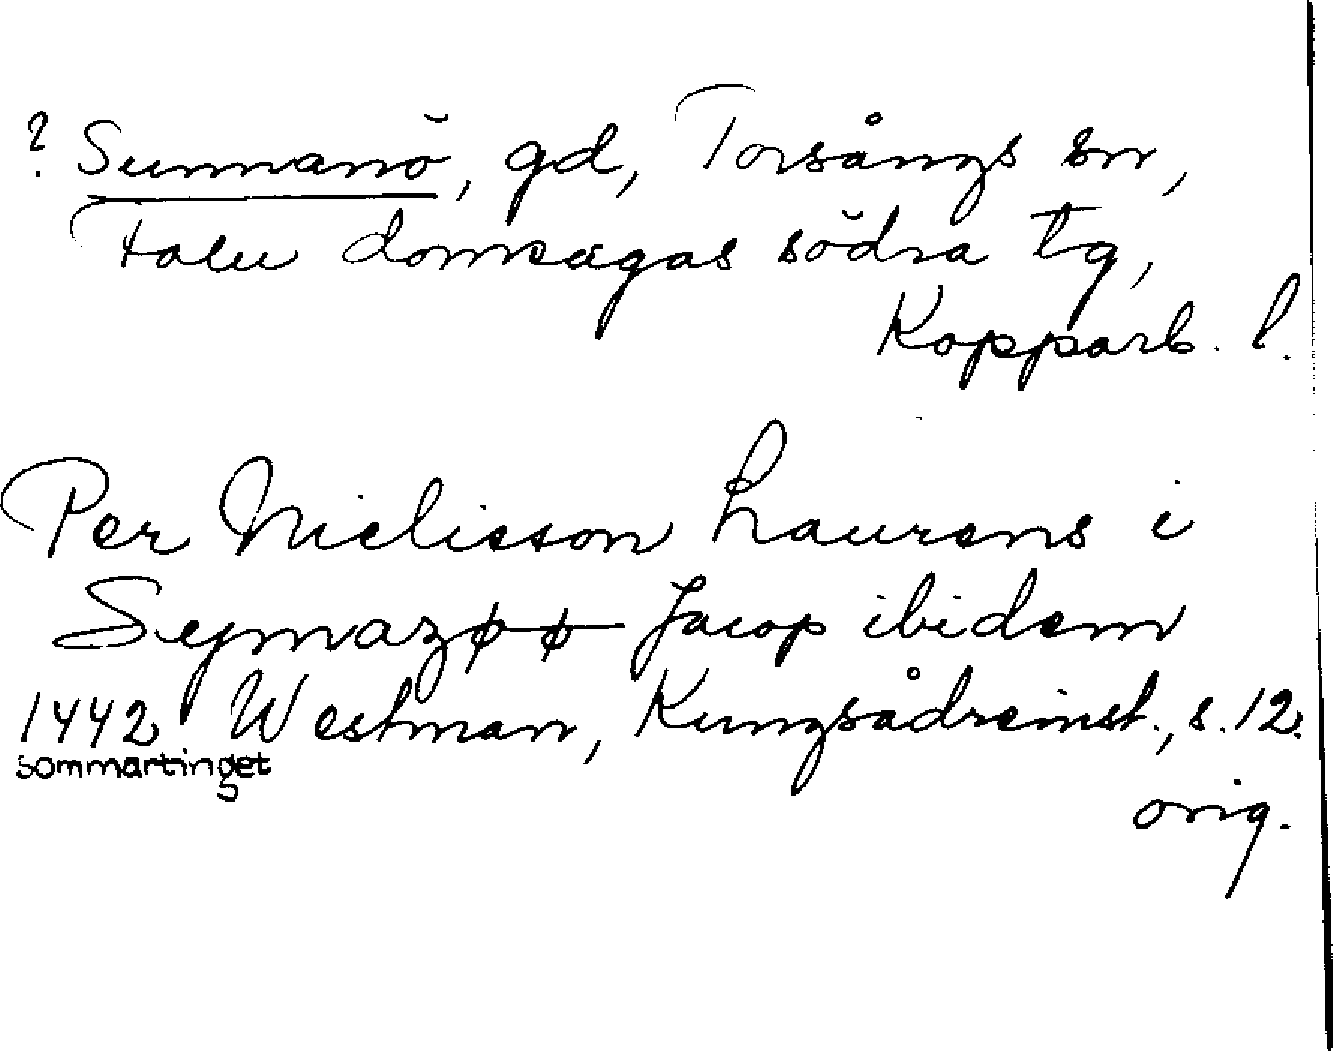 ? Sunnanö, gd, Torsångs sn,
Falu domsagas södra tg,
Kopparb. l.
Per Nielisson Laurens i
Symazøø Jacop ibidem
1442 Westman, Kungsådreinst., s. 12.
sommartinget
orig.